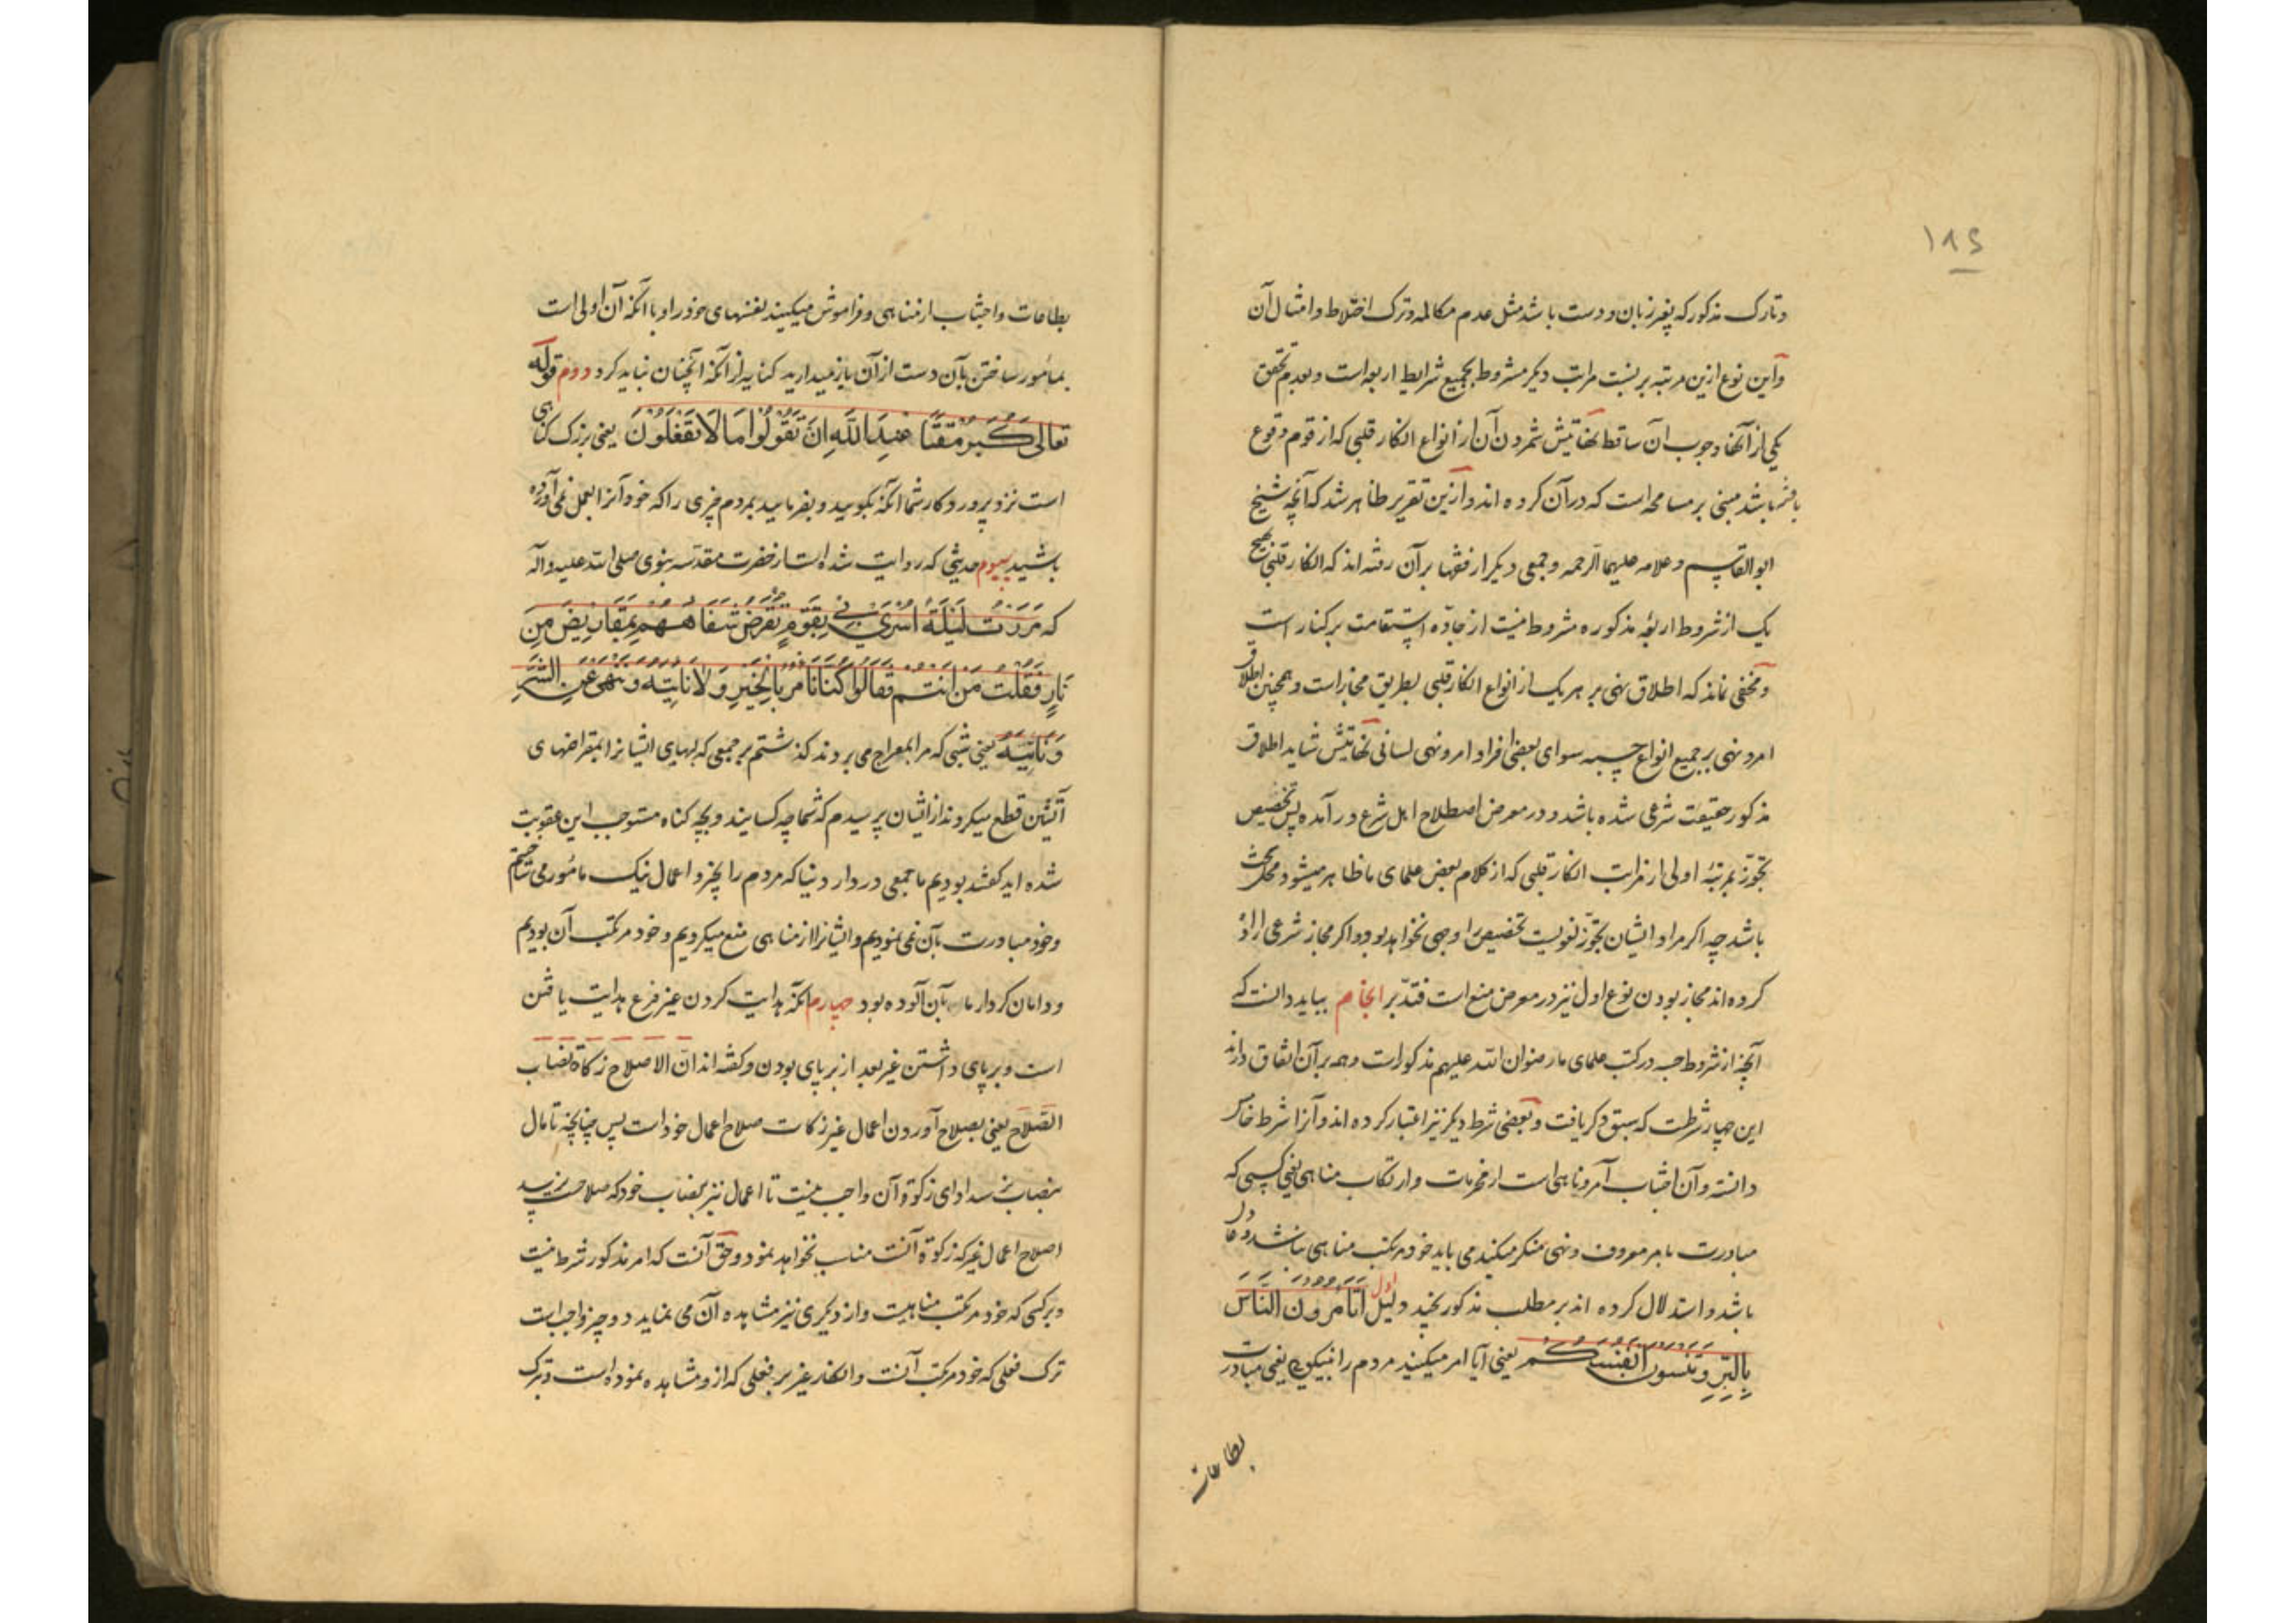 ۱۸۴
وتارک مذکور که بغیر زبان و دست باشد مثل عدم مکالمه وترک اختلاط وامثال آن
واین نوع ازین مرتبه بر نسبت مراتب دیکر مشروط بجمیع شرایط اربعه است وبعدم تحقق
یکی از آنها وجوب آن ساقط نهایتش شمردن آن از انواع انکار قلبی که از قوم وقوع
یافته باشد مبنی بر مسامحه است که در آن کرده اند وازین تقریر ظاهر شد که آنچه شیخ
ابوالقاسم وعلامه علیهما الرحمه وجمعی دیکر از فقها بر آن رفته اند که انکار قلبی بهیچ
یک از شروط اربعه مذکوره مشروط نیست از جادّه استقامت برکنار است
ومخفی نماند که اطلاق نهی بر هر یک از انواع انکار قلبی بطریق مجاز است وهمچنین اطلاق
امر ونهی بر جمیع انواع حسبه سوای بعضی افراد امر ونهی لسانی نهایتش شاید اطلاق
مذکور حقیقت شرعی شده باشد ودر معرض اصطلاح اهل شرع در آمده پس تخصیص
تجوّز بمرتبهٔ اولی از مراتب انکار قلبی که از کلام بعض علمای ما ظاهر میشود محل بحث
باشد چه اکر مراد ایشان تجوّز لغویست تخصیص را وجهی نخواهد بود واکر مجاز شرعی اراده
کرده اند مجاز بودن نوع اول نیز در معرض منع است فتدبّر انجام بباید دانست که
آنچه از شروط حسبه در کتب علمای ما رضوان الله علیهم مذکور است وهمه بر آن اتفاق دارند
این چهار شرطست که سبق ذکر یافت وبعضی شرط دیکر نیز اعتبار کرده اند وآنرا شرط خامس
دانسته وآن اجتناب آمر وناهی است از محرمات وارتکاب مناهی یعنی کسی که
مبادرت بامر معروف ونهی منکر میکند می باید خود مرتکب مناهی نباشد وعادل
باشد واستدلال کرده اند بر مطلب مذکور بچند دلیل اول أَتَأْمُرُونَ النَّاسَ
بِالْبِرِّ وَتَنْسَوْنَ أَنْفُسَكُمْ یعنی آیا امر میکنید مردم را به نیکویی یعنی مبادرت
بطاعات
بطاعات واجتناب از مناهی وفراموش میکنید نفسهای خود را وبا آنکه آن اولی است
بمأمور ساختن بآن دست از آن باز میدارید کنایه از آنکه آنچنان نباید کرد دوم قوله
تعالی كَبُرَ مَقْتًا عِنْدَ اللَّهِ اَنْ تَقُولُوا مَا لَا تَفْعَلُونَ یعنی بزرک کناهی
است نزد پروردکار شما آنکه بکویید وبفرمایید بمردم چیزی را که خود آنرا بعمل نمی آورده
باشید سیوم حدیثی که روایت شده است از حضرت مقدسه نبوی صلی الله علیه وآله
که مَرَرْتُ لَيْلَةَ اُسْرِيَ بِي بِقَوْمٍ تُقْرَضُ شِفَاهُهُمْ بِمَقَارِيضَ مِنْ
نَارٍ فَقُلْتُ مَنْ اَنْتُمْ فَقَالُوا كُنَّا نَأْمُرُ بِالْخَيْرِ وَلَا نَأْتِيهِ وَنَنْهَى عَنِ الشَّرِّ
وَنَأْتِيهِ یعنی شبی که مرا بمعراج می بردند کذشتم بر جمعی که لبهای ایشانرا بمقراضهای
آتشین قطع میکردند از ایشان پرسیدم که شما چه کسانید وبچه کناه مستوجب این عقوبت
شده اید کفتند بودیم ما جمعی در دار دنیا که مردم را بخیر واعمال نیک مأمور می ساختیم
وخود مبادرت بآن نمی نمودیم وایشانرا از مناهی منع میکردیم وخود مرتکب آن بودیم
ودامان کردار ما بآن آلوده بود چهارم آنکه هدایت کردن غیر فرع هدایت یافتن
است وبرپای داشتن غیر بعد از برپای بودن وکفته اند انّ الاصلاح زکاة نصاب
الصّلاح یعنی بصلاح آوردن اعمال غیر زکات صلاح اعمال خود است پس چنانچه تا مال
بنصاب نرسد ادای زکوة آن واجب نیست تا اعمال نیز بنصاب خود که صلاحست نرسد
اصلاح اعمال غیر که زکوة آنست مناسب نخواهد نمود وحق آنست که امر مذکور شرط نیست
وبر کسی که خود مرتکب مناهیست واز دیکری نیز مشاهده آن می نماید دو چیز واجب است
ترک فعلی که خود مرتکب آنست وانکار غیر بر فعلی که ازو مشاهده نموده است وبترک